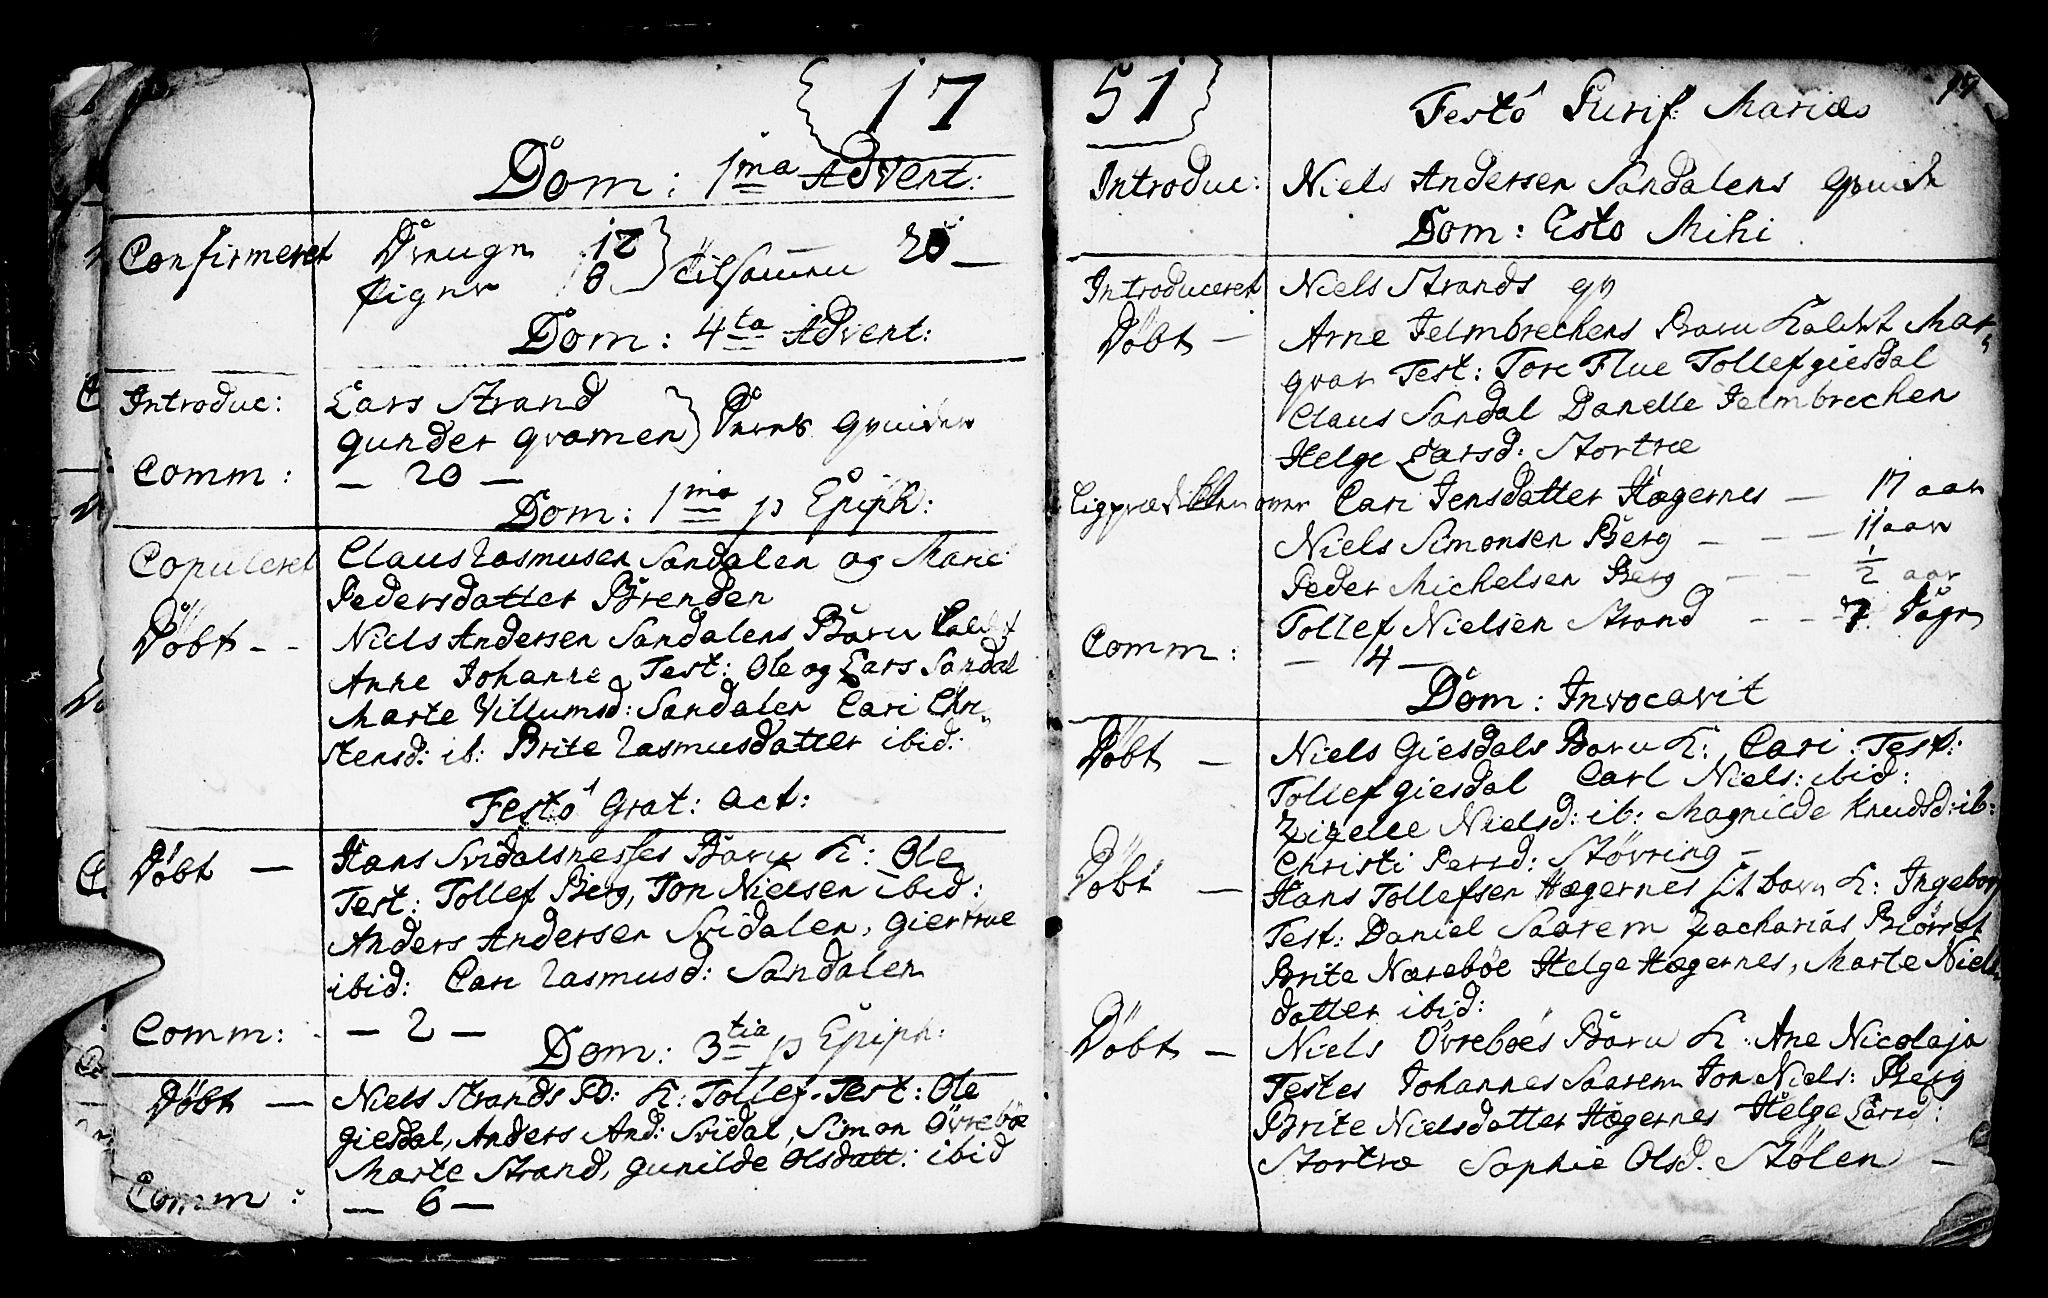 17
Dom: 1ma Advent:
Confirmeret Drenge 12
Piger 8 tilsamen 20 —
Dom: 4ta Advent:
Introduc: Lars Strand
gunder qvamen Deres qvinder
Comm: — 20 —
Dom: 1ma p Epiph:
Copuleret Claus Rasmusen Sandalen og Marie
Pedersdatter Brenden
Döbt - - Niels Andersen Sandalens Barn kaldt
Anne Johanne Test: Ole og Lars Sandal
Marte Villumsd: Sandalen Cari Chri„
stensd: ib: Brite Rasmusdatter ibid:
Festo Grat: act:
Döbt — Hans Svidalsnesses Barn K: Ole
Test: Tollef Berg, Jon Nielsen ibid:
Anders Andersen Svidalen, giertrue
ibid: Cari Rasmusd: Sandalen
Comm: — 2 —
Dom: 3tia p Epiph:
Döbt — Niels Strands B: K: Tollef. Test: Ole
giesdal, Anders And: Svidal, Simon Övreböe
Marte Strand, gunilde Olsdatt: ibid
Comm: — 6 —
51
17
Festo Purif: Mariæ
Introduc: Niels Andersen Sandalens qvinde
Dom: Esto Mihi
Introduceret Niels Strands qv
Döbt — Arne Jelmbrechens Barn kaldet Mar„
qvar Test: Tore Flue Tollef giesdal
Claus Sandal Danelle Jelmbrechen
Helge Larsd: Stortræ
Ligpræd over Cari Jensdatter Hægernes — 17 aar
Niels Simonsen Berg — — — 11 aar
Peder Michelsen Berg — — 1/2 aar
Tollef Nielsen Strand — — 7 Dage
Comm: — 14 —
Dom: Invocavit
Döbt — Niels Giesdals Barn K: Cari: Test:
Tollef giesdal Carl Niels: ibid:
Zizelle Nielsd: ib: Magnilde Knudsd: ib:
Christi Persd: Støvring —
Döbt — Hans Tollefsen Hægernes Barn K: Ingeborg
Test: Daniel Saarem Zacharias Biörset
Brite Næreböe Helge Hægernes, Marte Niels
datter ibid:
Döbt — Niels Övreböes Barn K: Ane Nicolaja
Testes Johannes Saarem Jon Niels: Berg
Brite Nielsdatter Hægernes Helge Larsd:
Stortræ Sophie Olsd. Stølen —